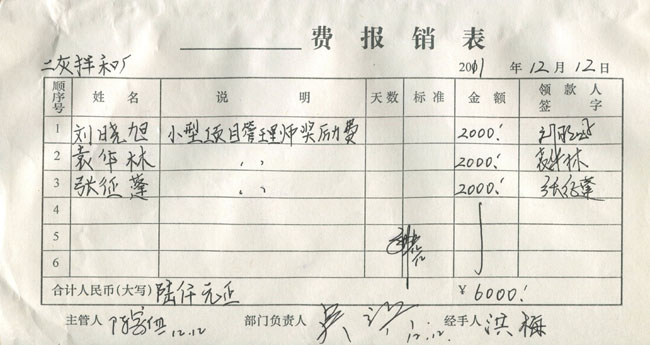 费报销表
二灰拌和厂 2011年12月12日
顺序号 姓名 说明 天数 标准 金额 领款人签字
1 刘晓旭 小型项目管理师奖励费 2000.- 刘晓旭
2 袁华林 〃 2000.- 袁华林
3 张征蓬 〃 2000.- 张征蓬
4
5
6
合计人民币(大写) 陆仟元正 ¥ 6000.-
主管人 12.12 部门负责人 12.12. 经手人 洪梅